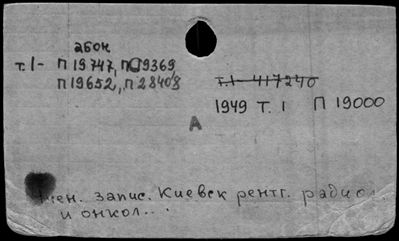 абон
т.1- П19747, П19369,
П19652, П28408
т.1- 417240
1949 т. 1 П 19000
А
запис. Киевск рентг. радиол.
и онкол...